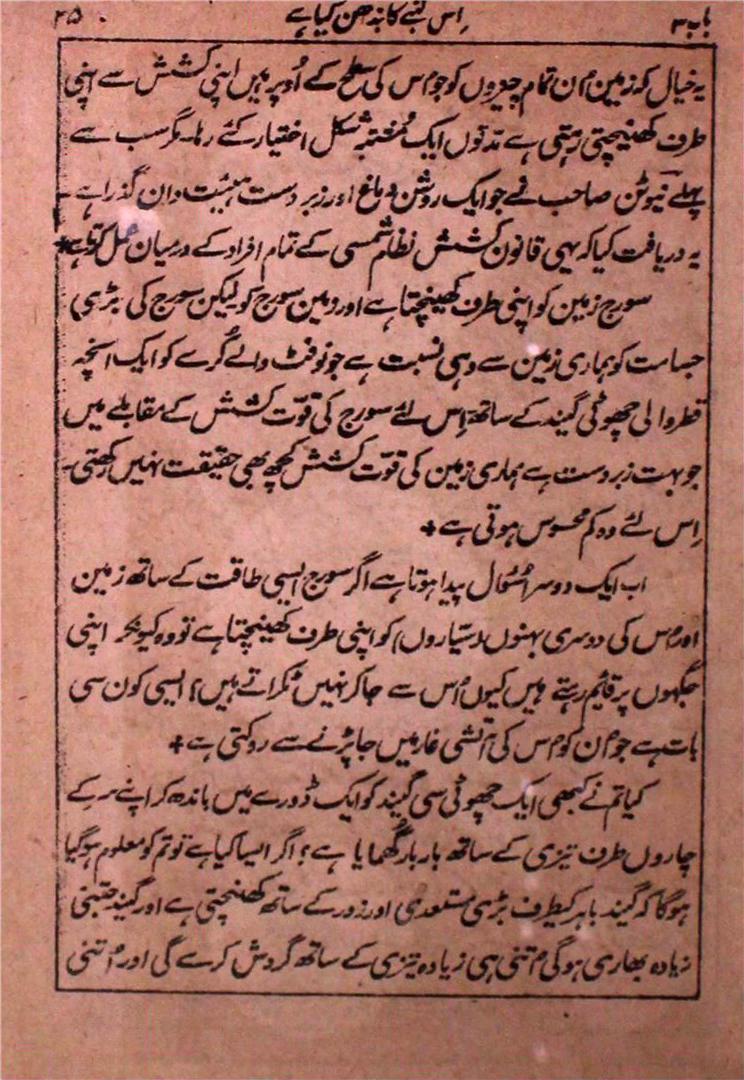 باب ۳ اِس کنبے کا بندھن کیا ہے ۴۵
یہ خیال کہ زمین اُن تمام چیزوں کو جو اُس کی سطح کے اُوپر ہیں اپنی کشش سے اپنی
طرف کھینچتی رہتی ہے مدتوں ایک مُشتبہ شکل اختیار کئے رہا۔ مگر سب سے
پہلے نیوٹن صاحب نے جو ایک روشن دماغ اور زبردست ہیئت دان گذرا ہے
یہ دریافت کیا کہ یہی قانون کشش نظام شمسی کے تمام افراد کے درمیان عمل کرتا ہے +
سورج زمین کو اپنی طرف کھینچتا ہے اور زمین سورج کو لیکن سورج کی بڑی
جسامت کو ہماری زمین سے وہی نسبت ہے جو نو فٹ والے کُرے کو ایک انچہ
قطر والی چھوٹی گیند کے ساتھ اِس لئے سورج کی قوّت کشش کے مقابلے میں
جو بہت زبردست ہے ہماری زمین کی قوّت کشش کچھ بھی حقیقت نہیں رکھتی۔
اِس لئے وہ کم محسوس ہوتی ہے +
اب ایک دوسرا سُوال پیدا ہوتا ہے اگر سورج ایسی طاقت کے ساتھ زمین
اور اُس کی دوسری بہنوں (ستیاروں) کو اپنی طرف کھینچتا ہے تو وہ کیونکر اپنی
جگہوں پر قائم رہتے ہیں کیوں اُس سے جا کر نہیں ٹکراتے ہیں؟ ایسی کون سی
بات ہے جو اُن کو اُس کی آتشی غار میں جا پڑنے سے روکتی ہے +
کیا تم نے کبھی ایک چھوٹی سی گیند کو ایک ڈورے میں باندھ کر اپنے سر کے
چاروں طرف تیزی کے ساتھ بار بار گُھمایا ہے؟ اگر ایسا کیا ہے تو تم کو معلوم ہو گیا
ہوگا کہ گیند باہر کیطرف بڑی مستعدی اور زور کے ساتھ کھنچتی ہے اور گیند جتنی
زیادہ بھاری ہوگی اُتنی ہی زیادہ تیزی کے ساتھ گردش کرے گی اور اُتنی